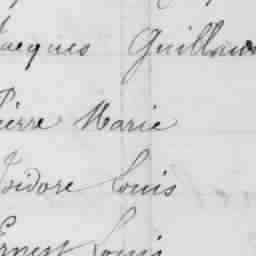 Jacques Guillaum
Pierre Marie
Isidore Louis
Ernest Louis